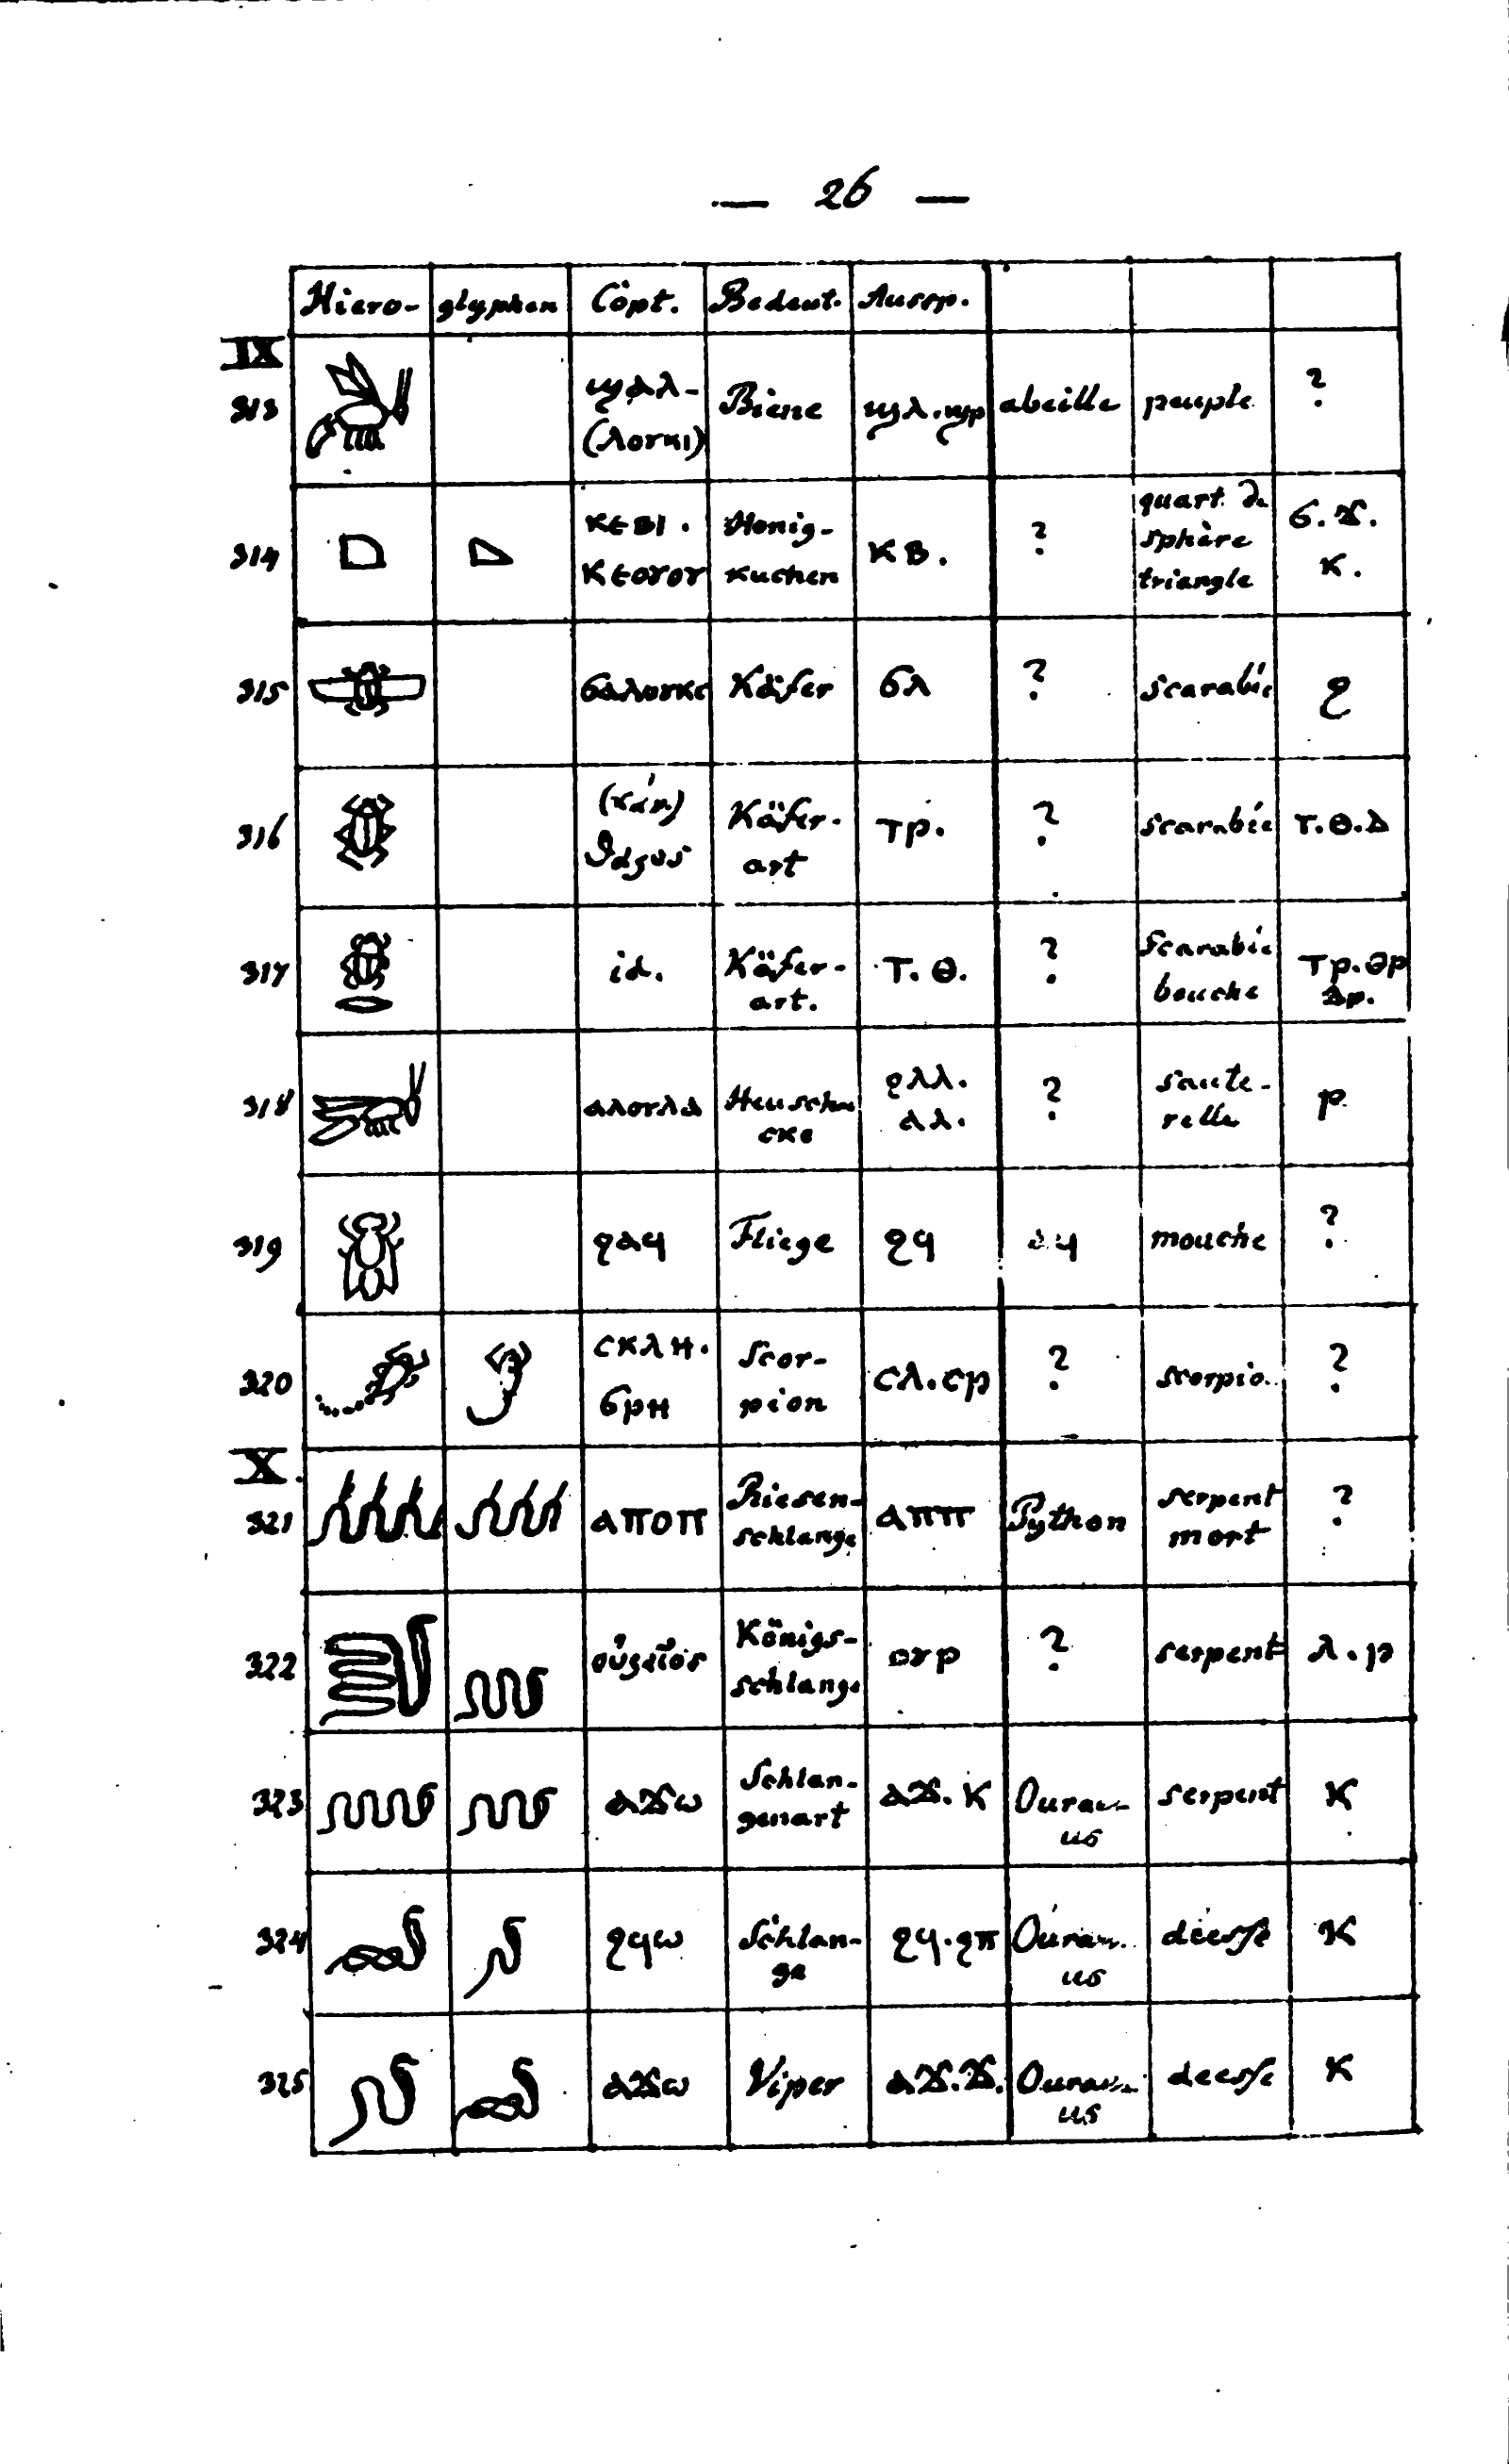 — 26 —
Hiero- glyphen Copt. Bedeut. Aussp.
IX
313 ϣⲁⲗ- (ⲗⲟⲩⲕⲓ) Biene ϣⲗ.ϣⲣ abeille peuple ?
314 ⲕⲉⲃⲓ. ⲕⲉⲟⲩⲟⲩ Honig- kuchen ⲕⲃ. ? quart. de sphère triangle ϭ.ϫ. ⲕ.
315 ϭⲁⲗⲟⲩⲕⲥ Käfer ϭⲗ ? scarabée ϩ
316 (κάν) θάρος Käfer- art ⲧⲣ. ? scarabée ⲧ.ⲑ.ⲇ
317 id. Käfer- art. ⲧ.ⲑ. ? Scarabée bouche ⲧⲣ.ⲑⲣ ⲇⲣ.
318 ⲁⲗⲟⲩⲗⲁ Heuschre cke ϩⲗⲗ. ⲁⲗ. ? saute- relle ⲣ
319 ϩⲁϥ Fliege ϩϥ ⲁϥ mouche ?
320 ⲥⲕⲗⲏ. ϭⲣⲏ Scor- pion ⲥⲗ.ⲥⲣ ? scorpio. ?
X.
321 ⲁⲡⲟⲡ Riesen- schlange ⲁⲡⲡ Python serpent mort ?
322 οὐραῖος Königs- schlange ⲟⲩⲣ ? serpent ⲗ.ⲣ
323 ⲁϫⲱ Schlan- genart ⲁϫ.ⲕ Ourae- us serpent ⲕ
324 ϩϥⲱ Schlan- ge ϩϥ.ϩⲡ Ourae- us déesse ⲕ
325 ⲁϫⲱ Viper ⲁϫ.ϫ. Ourae- us deesse ⲕ